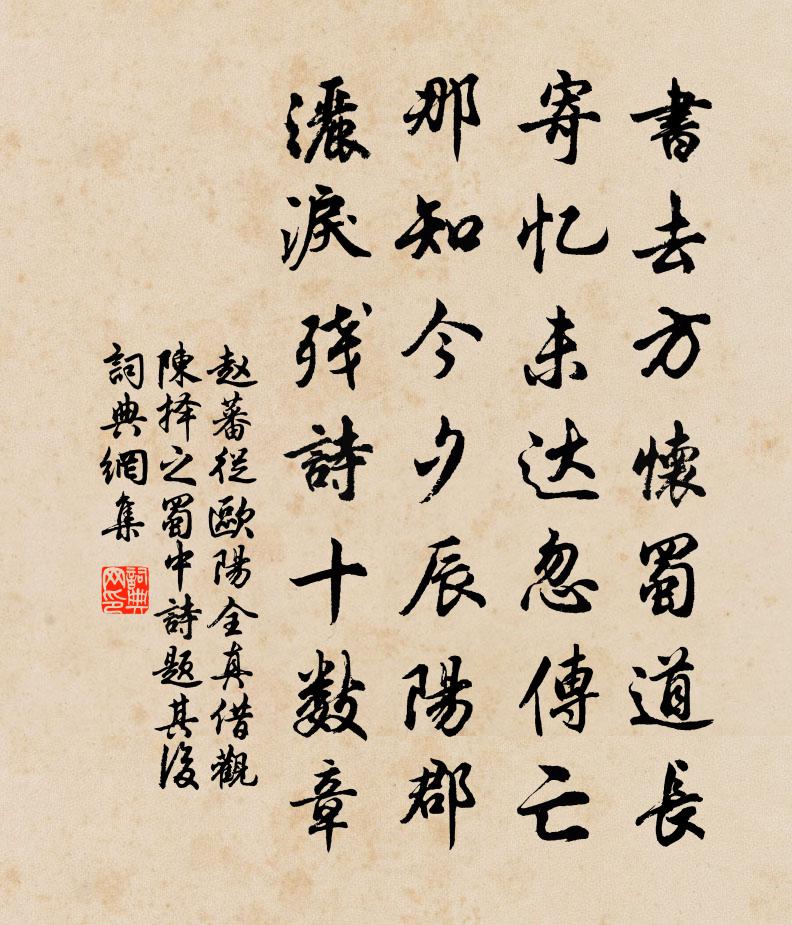 書去方懷蜀道長
寄忆未达忽傳亡
那知今夕辰陽郡
灑淚残詩十数章
赵蕃從歐陽全真借觀
陳择之蜀中詩题其後
詞典網集
詞典网印